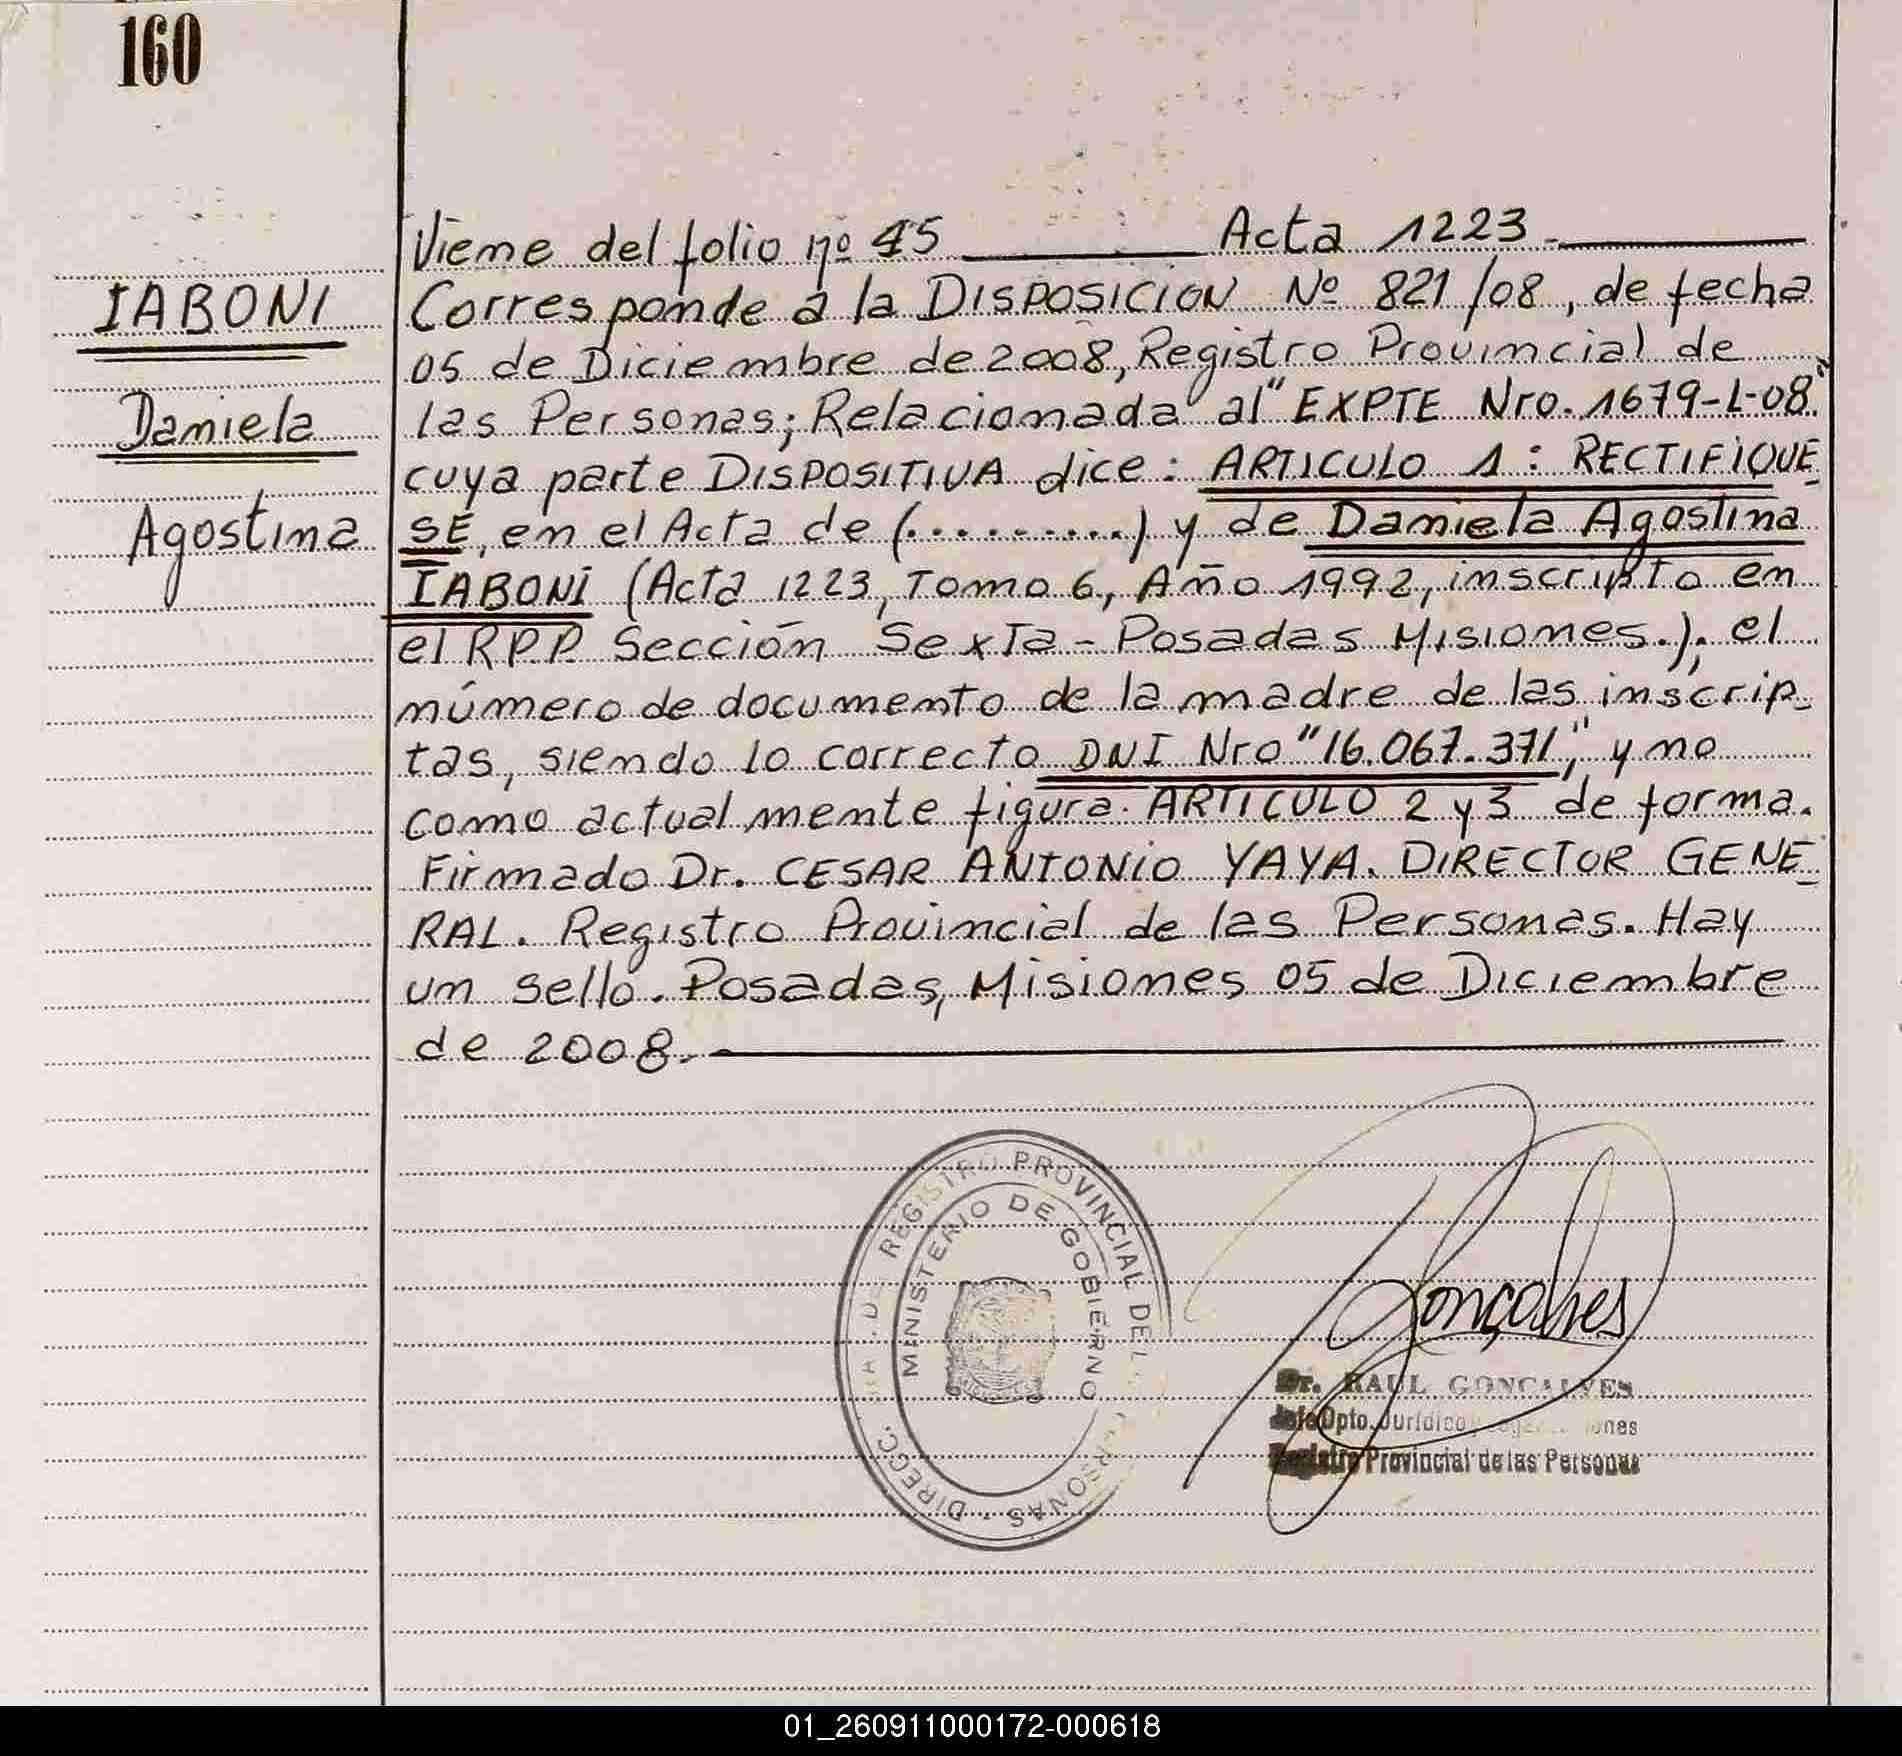 160
IABONI
Daniela
Agostina
Viene del folio nº 45 Acta 1223.
Corresponde a la DISPOSICION Nº 821/08, de fecha
05 de Diciembre de 2008, Registro Provincial de
las Personas; Relacionada al "EXPTE Nro. 1679-L-08"
cuya parte DISPOSITIVA dice: ARTICULO 1: RECTIFIQUE-
SE, en el Acta de (..........) y de Daniela Agostina
IABONI (Acta 1223, Tomo 6, Año 1992, inscripto en
el R.P.P. Sección Sexta - Posadas Misiones.); el
número de documento de la madre de las inscrip-
tas, siendo lo correcto DNI Nro "16.067.371", y no
como actualmente figura. ARTICULO 2 y 3 de forma.
Firmado Dr. CESAR ANTONIO YAYA. DIRECTOR GENE-
RAL. Registro Provincial de las Personas. Hay
un sello. Posadas, Misiones 05 de Diciembre
de 2008.-
REGISTRO PROVINCIAL DE
PERSONAS - DIRECC.
MINISTERIO DE GOBIERNO
Gonçalves
Dr. RAUL GONCALVES
Jefe Dpto. Jurídico
Registro Provincial de las Personas
01_260911000172-000618